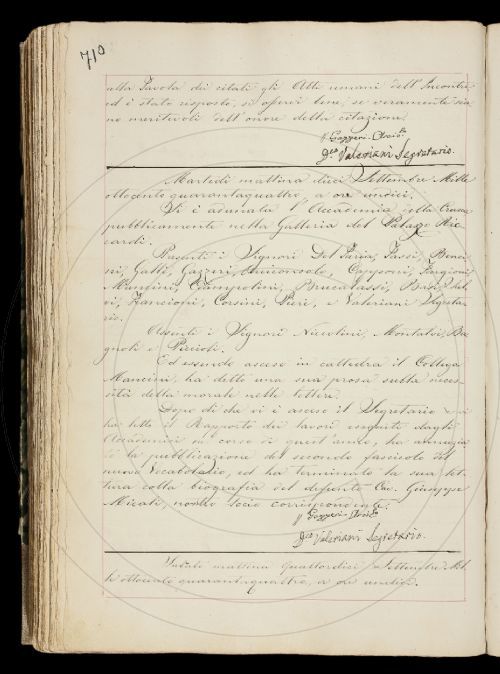 710
alla Tavola dei citati gli Atti umani dell'Incontri
ed è stato risposto, si osservi bene, se veramente sia-
no meritevoli dell'onore della citazione.
Gazzeri Arcic.
Valeriani Segretario.
Martedì mattina dieci Settembre Mille
ottocento quarantaquattro, a ore undici.
Si è adunata l'Accademia della Crusca
pubblicamente nella Galleria del Palazzo Ric-
cardi.
Presenti i Signori Del Furia, Tassi, Benci-
ni, Gatti, Gazzeri, Capponi, Targioni
Mancini, Ciampolini, Brucalassi,
vi, Zannoni, Corsini, Pieri, e Valeriani Segreta-
rio.
Assenti i Signori Niccolini, Montalvi, Ba-
gnoli e Puccioli.
Ed essendo asceso in cattedra il Collega
Mancini, ha detto una sua prosa sulla neces-
sità della morale nelle lettere.
Dopo di che vi è asceso il Segretario e vi
ha letto il Rapporto dei lavori eseguiti dagli
Accademici in corso di quest'anno, ha annunzia-
to la pubblicazione del secondo fascicolo del
nuovo Vocabolario, ed ha terminato la sua let-
tura colla biografia del defunto Cav. Giuseppe
Micali, nostro Socio corrispondente.
Gazzeri Arcic.
Valeriani Segretario.
Sabato mattina quattordici Settembre Mil-
le ottocento quarantaquattro, a ore undici.